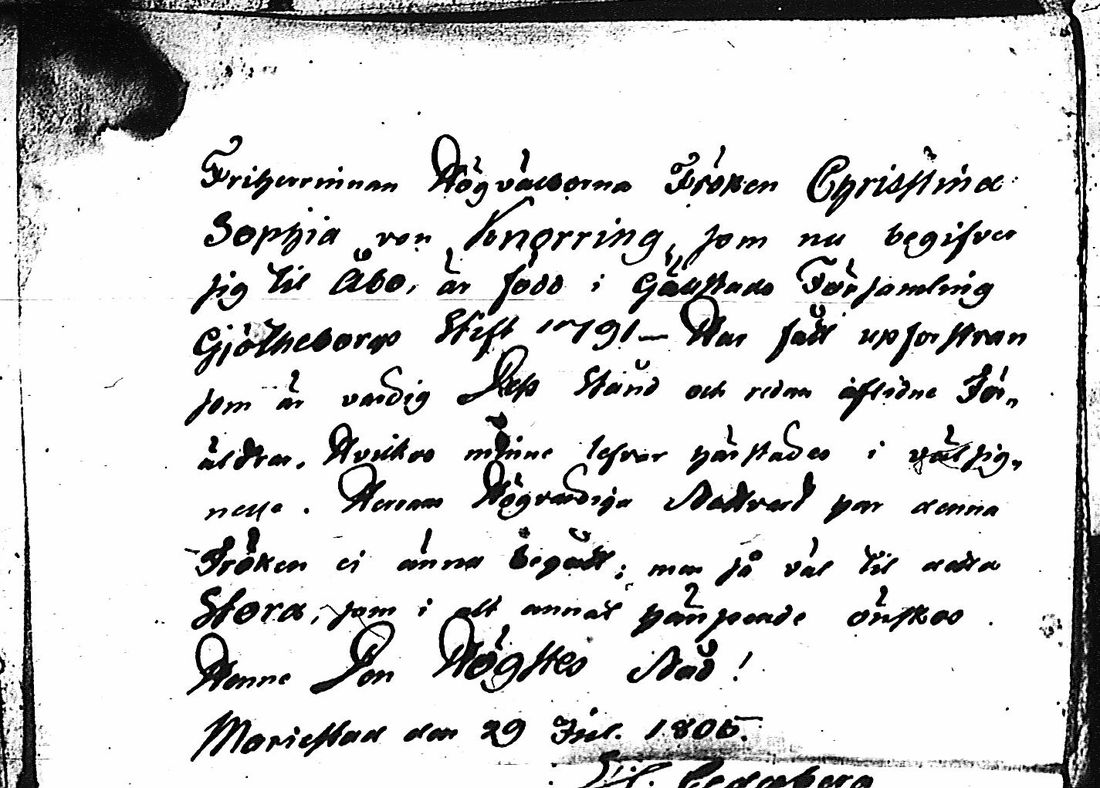 Friherrinnan Högvälborna Fröken Christina
Sophia von Knorring, som nu begifver
sig til Åbo, är född i Gällstads Församling
Gjötheborgs Stift 1791 — Har fått upfostran
som är värdig Dess Stånd och redan aflidne För„
äldrar, Hvilkas minne lefver härstädes i välsig„
nelse. Herrans Högvärdiga Nattvard har denna
Fröken ei ännu begått; men så väl til detta
Stora, som i alt annat hänseende önskas
Henne Den Högstes Nåd!
Mariestad den 29 Jul. 1805.
Cederberg